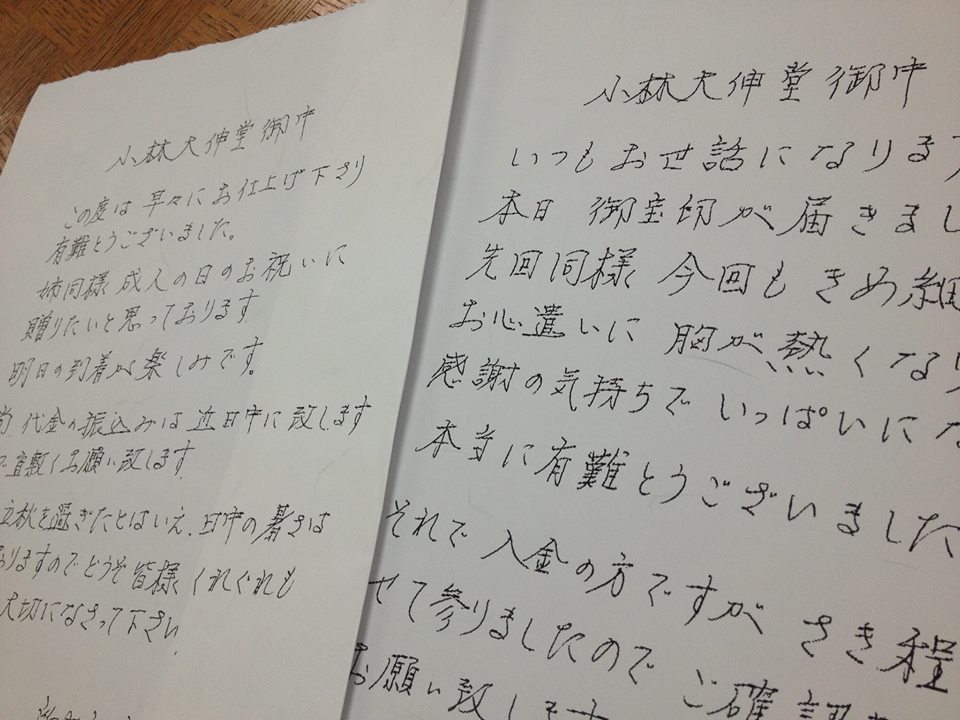 小林大伸堂 御中
この度は 早々に お仕上げ下さり
有難とうございました。
姉同様 成人の日のお祝いに
贈りたいと思っております
明日の到着が楽しみです。
代金の振込みは近日中に致します
宜敷くお願い致します
立秋を過ぎたとはいえ、日中の暑さは
おりますので どうぞ 皆様 くれぐれも
大切になさって下さい
小林大伸堂 御中
いつも お世話に なります
本日 御宝印が 届きまし
先回同様 今回も きめ細
お心遣いに 胸が熱くなり
感謝の気持ちで いっぱいにな
本当に有難とうございました
それで 入金の方ですが さき程
せて参りましたので ご確認
お願い致します